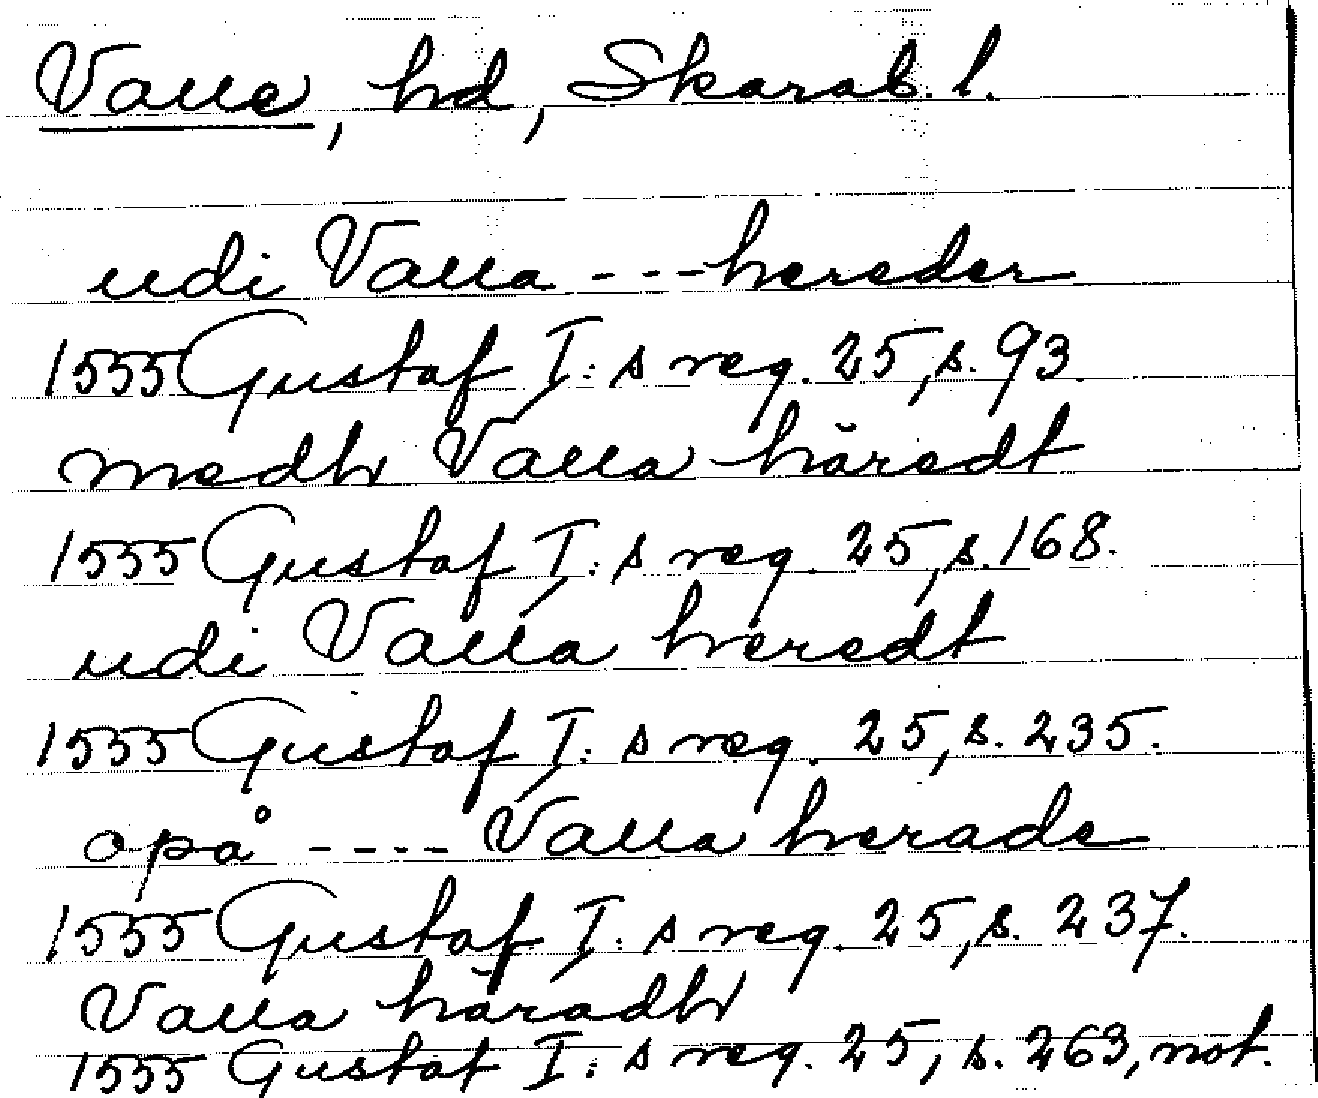 Valle, hd, Skarab. l.
udi Valla - - - hereder
1555 Gustaf I:s reg. 25, s. 93.
medh Valla häredt
1555 Gustaf I:s reg. 25, s. 168.
udi Valla heredt
1555 Gustaf I:s reg. 25, s. 235.
opå - - - - Valla herade
1555 Gustaf I:s reg. 25, s. 237.
Valla häradh
1555 Gustaf I:s reg. 25, s. 263, not.